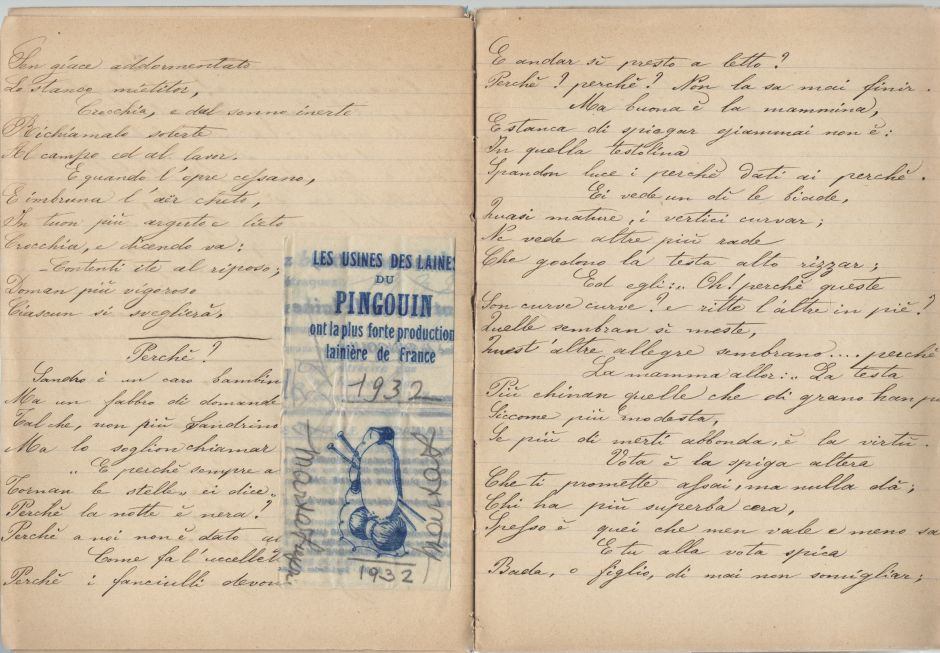 Sen giace addormentato
Lo stanco mietitor,
Crocchia, e dal sonno inerte
Richiamalo solerte
Al campo ed al lavor.
E quando l'opre cessano,
E imbruna l'aër cheto,
In tuon più arguto e lieto
Crocchia, e dicendo va:
- Contenti ite al riposo;
Doman più vigoroso
Ciascun si sveglierà.
Perchè?
Sandro è un caro bambin
Ma un fabbro di domande
Tal che, non più Sandrino
Ma lo soglion chiamar
„ E perchè sempre a
Tornan le stelle„ ei dice„
Perchè la notte è nera?
Perchè a noi non è dato
Come fa l'uccellet
Perchè i fanciulli devon
LES USINES DES LAINES
DU
PINGOUIN
ont la plus forte production
lainière de France
1932
1932
E andar sì presto a letto?
Perchè? perchè? Non la sa mai finir.
Ma buona è la mammina,
E stanca di spiegar giammai non è:
In quella testolina
Spandon luce i perchè dati ai perchè.
Ei vede un dì le biade,
Quasi mature, i vertici curvar;
Ne vede altre più rade
Che godono la testa alto rizzar;
Ed egli:„ Oh! perchè queste
Son curve curve? e ritte l'altre in piè?
Quelle sembran sì meste,
Quest'altre allegre sembrano.... perchè
La mamma allor:„ La testa
Più chinan quelle che di grano han pi
Siccome più modesta,
Se più di merti abbonda, è la virtù.
Vota è la spiga altera
Che ti promette assai, ma nulla dà;
Chi ha più superba cera,
Spesso è quei che men vale e meno sa
E tu alla vota spica
Bada, o figlio, di mai non somigliar;